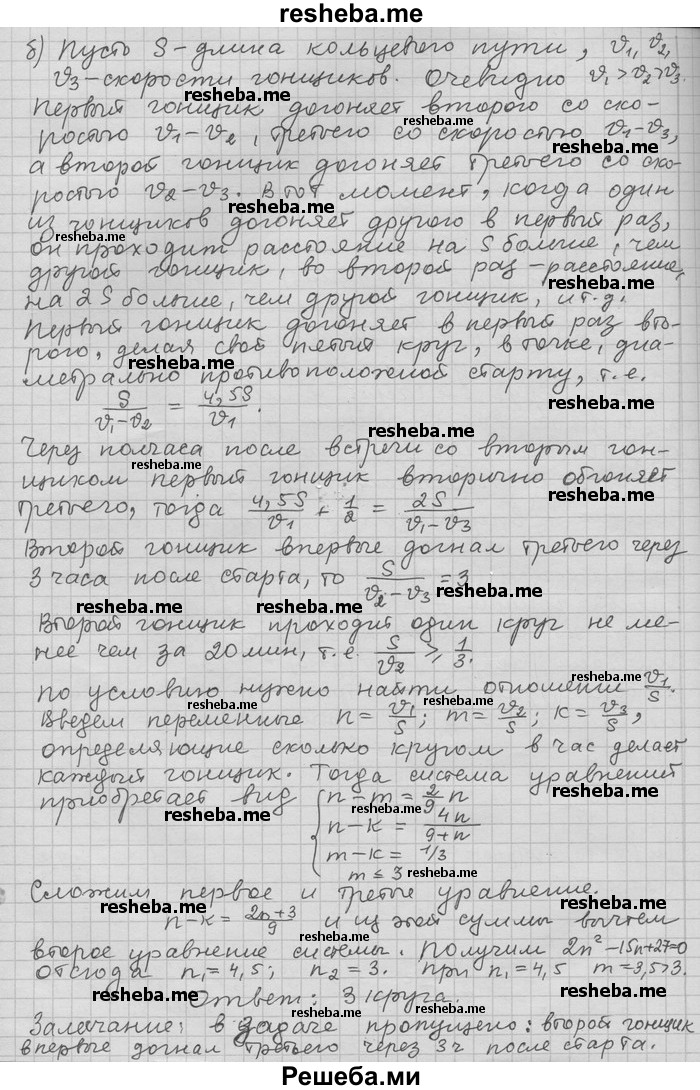 resheba.me
б) Пусть S-длина кольцевого пути, v1, v2,
v3-скорости гонщиков. Очевидно v1>v2>v3.
resheba.me
Первый гонщик догоняет второго со ско-
ростью v1-v2, третьего со скоростью v1-v3,
resheba.me resheba.me
а второй гонщик догоняет третьего со ско-
ростью v2-v3. В тот момент, когда один
resheba.me
из гонщиков догоняет другого в первый раз,
resheba.me
он проходит расстояние на S больше, чем
другой гонщик, во второй раз-расстояние,
resheba.me
на 2S больше, чем другой гонщик, и т.д.
Первый гонщик догоняет в первый раз вто-
рого, делая свой пятый круг, в точке, диа-
resheba.me
метрально противоположной старту, т.е.
S/(v1-v2) = 4,5S/v1.
resheba.me
Через полчаса после встречи со вторым гон-
resheba.me resheba.me
щиком первый гонщик вторично обгоняет
третьего, тогда 4,5S/v1 + 1/2 = 2S/(v1-v3)
resheba.me
Второй гонщик впервые догнал третьего через
3 часа после старта, то S/(v2-v3) = 3
resheba.me resheba.me
Второй гонщик проходит один круг не ме-
нее чем за 20 мин, т.е. S/v2 ⩾ 1/3.
resheba.me
По условию нужно найти отношении v1/S.
resheba.me
Введем переменные n = v1/S; m = v2/S; k = v3/S,
определяющие сколько кругом в час делает
resheba.me
каждый гонщик. Тогда система уравнений
приобретает вид { n-m = 2/9 n
resheba.me resheba.me
n-k = 4n/(9+n)
m-k = 1/3
m ≤ 3 resheba.me
Сложим первое и третье уравнение.
resheba.me
n-k = (2n+3)/9 и из этой суммы вычтем
resheba.me
второе уравнение системы. Получим 2n²-15n+27=0
отсюда n1=4,5; n2=3. При n1=4,5 m=3,5>3.
resheba.me resheba.me
Ответ: 3 круга.
resheba.me
Замечание: в задаче пропущено: второй гонщик
впервые догнал третьего через 3ч после старта.
resheba.me
Решеба.ми